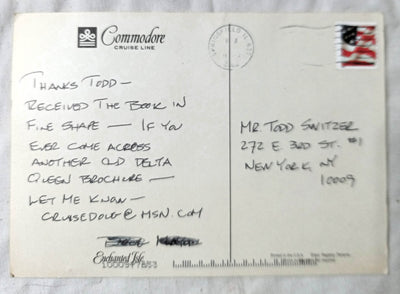 Commodore
CRUISE LINE
THANKS TODD —
RECEIVED THE BOOK IN
FINE SHAPE — IF YOU
EVER COME ACROSS
ANOTHER OLD DELTA
QUEEN BROCHURE —
LET ME KNOW —
CRUISEDOUG@MSN.COM
Enchanted Isle
MR. TODD SWITZER
272 E. 3RD ST. #1
NEW YORK, NY
10009
Printed in the U.S.A.